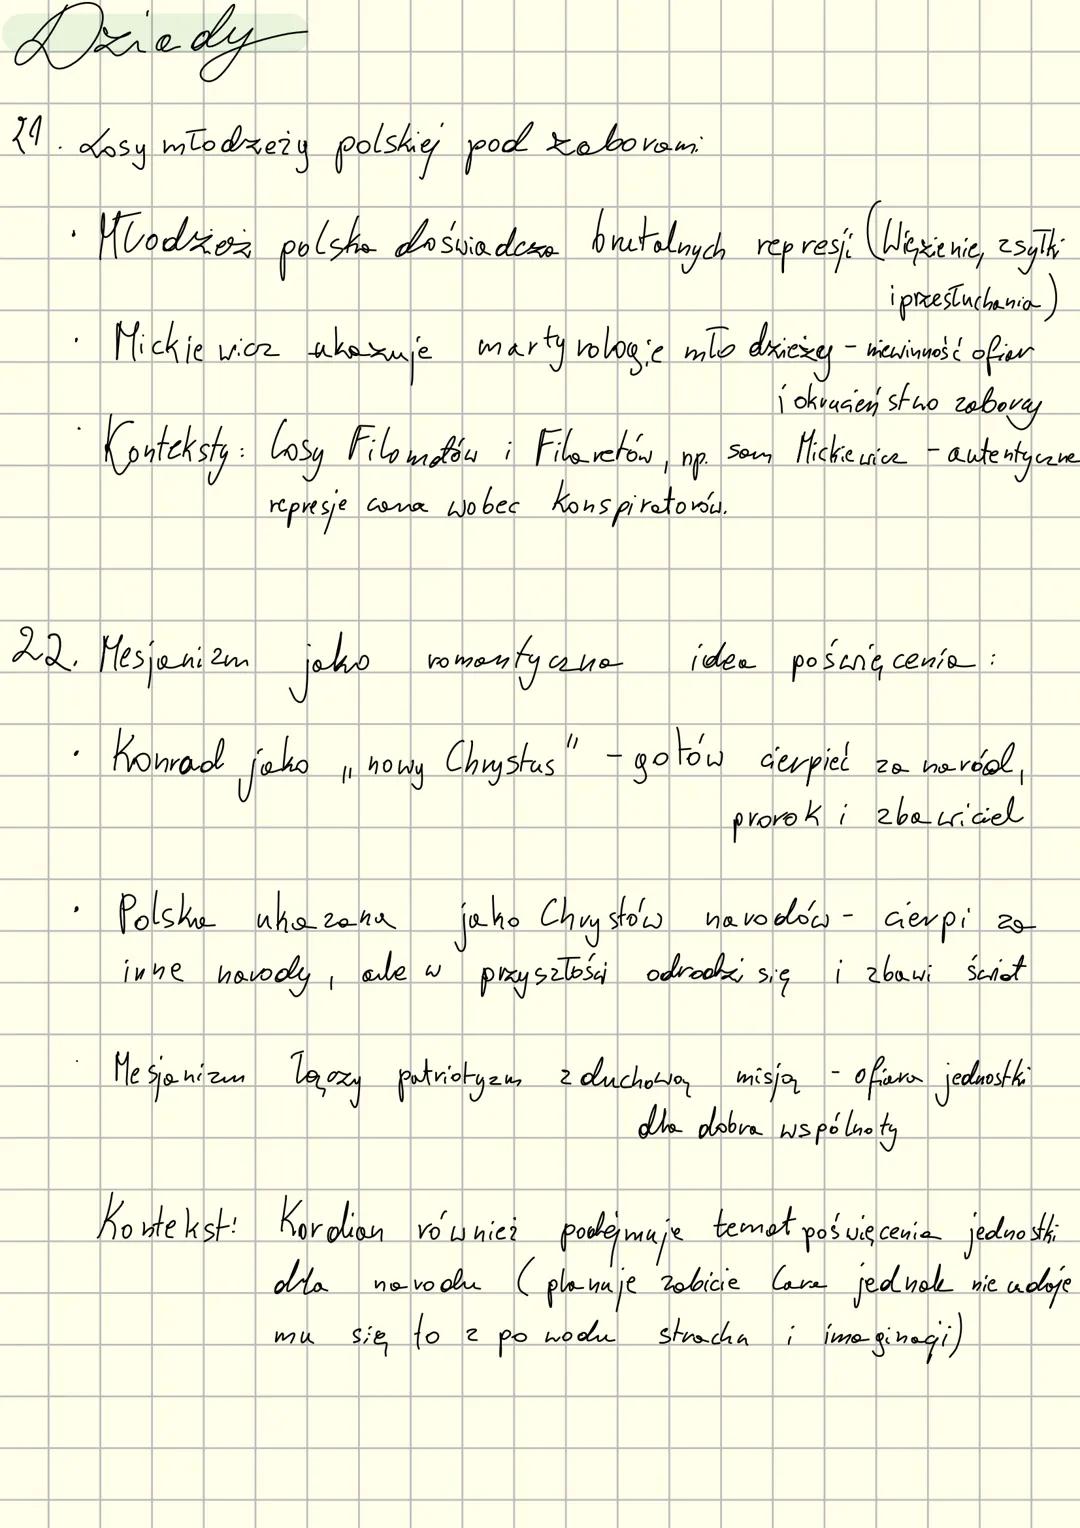 Dziady
21. Losy młodzieży polskiej pod zaborami
· Młodzież polska doświadcza brutalnych represji (Więzienie, zsyłki
i przesłuchania)
· Mickiewicz ukazuje martyrologię młodzieży - niewinność ofiar
i okrucieństwo zaborcy
· Konteksty: Losy Filomatów i Filaretów, np. sam Mickiewicz - autentyczne
represje cara wobec konspiratorów.
22. Mesjanizm jako romantyczna idea poświęcenia:
· Konrad jako „nowy Chrystus" - gotów cierpieć za naród,
prorok i zbawiciel
· Polska ukazana jako Chrystów narodów - cierpi za
inne narody, ale w przyszłości odrodzi się i zbawi świat
· Mesjanizm łączy patriotyzm z duchową misją - ofiara jednostki
dla dobra wspólnoty
Kontekst: Kordian również podejmuje temat poświęcenia jednostki
dla narodu (planuje zabicie Cara jednak nie udaje
mu się to z powodu strachu i imaginacji)